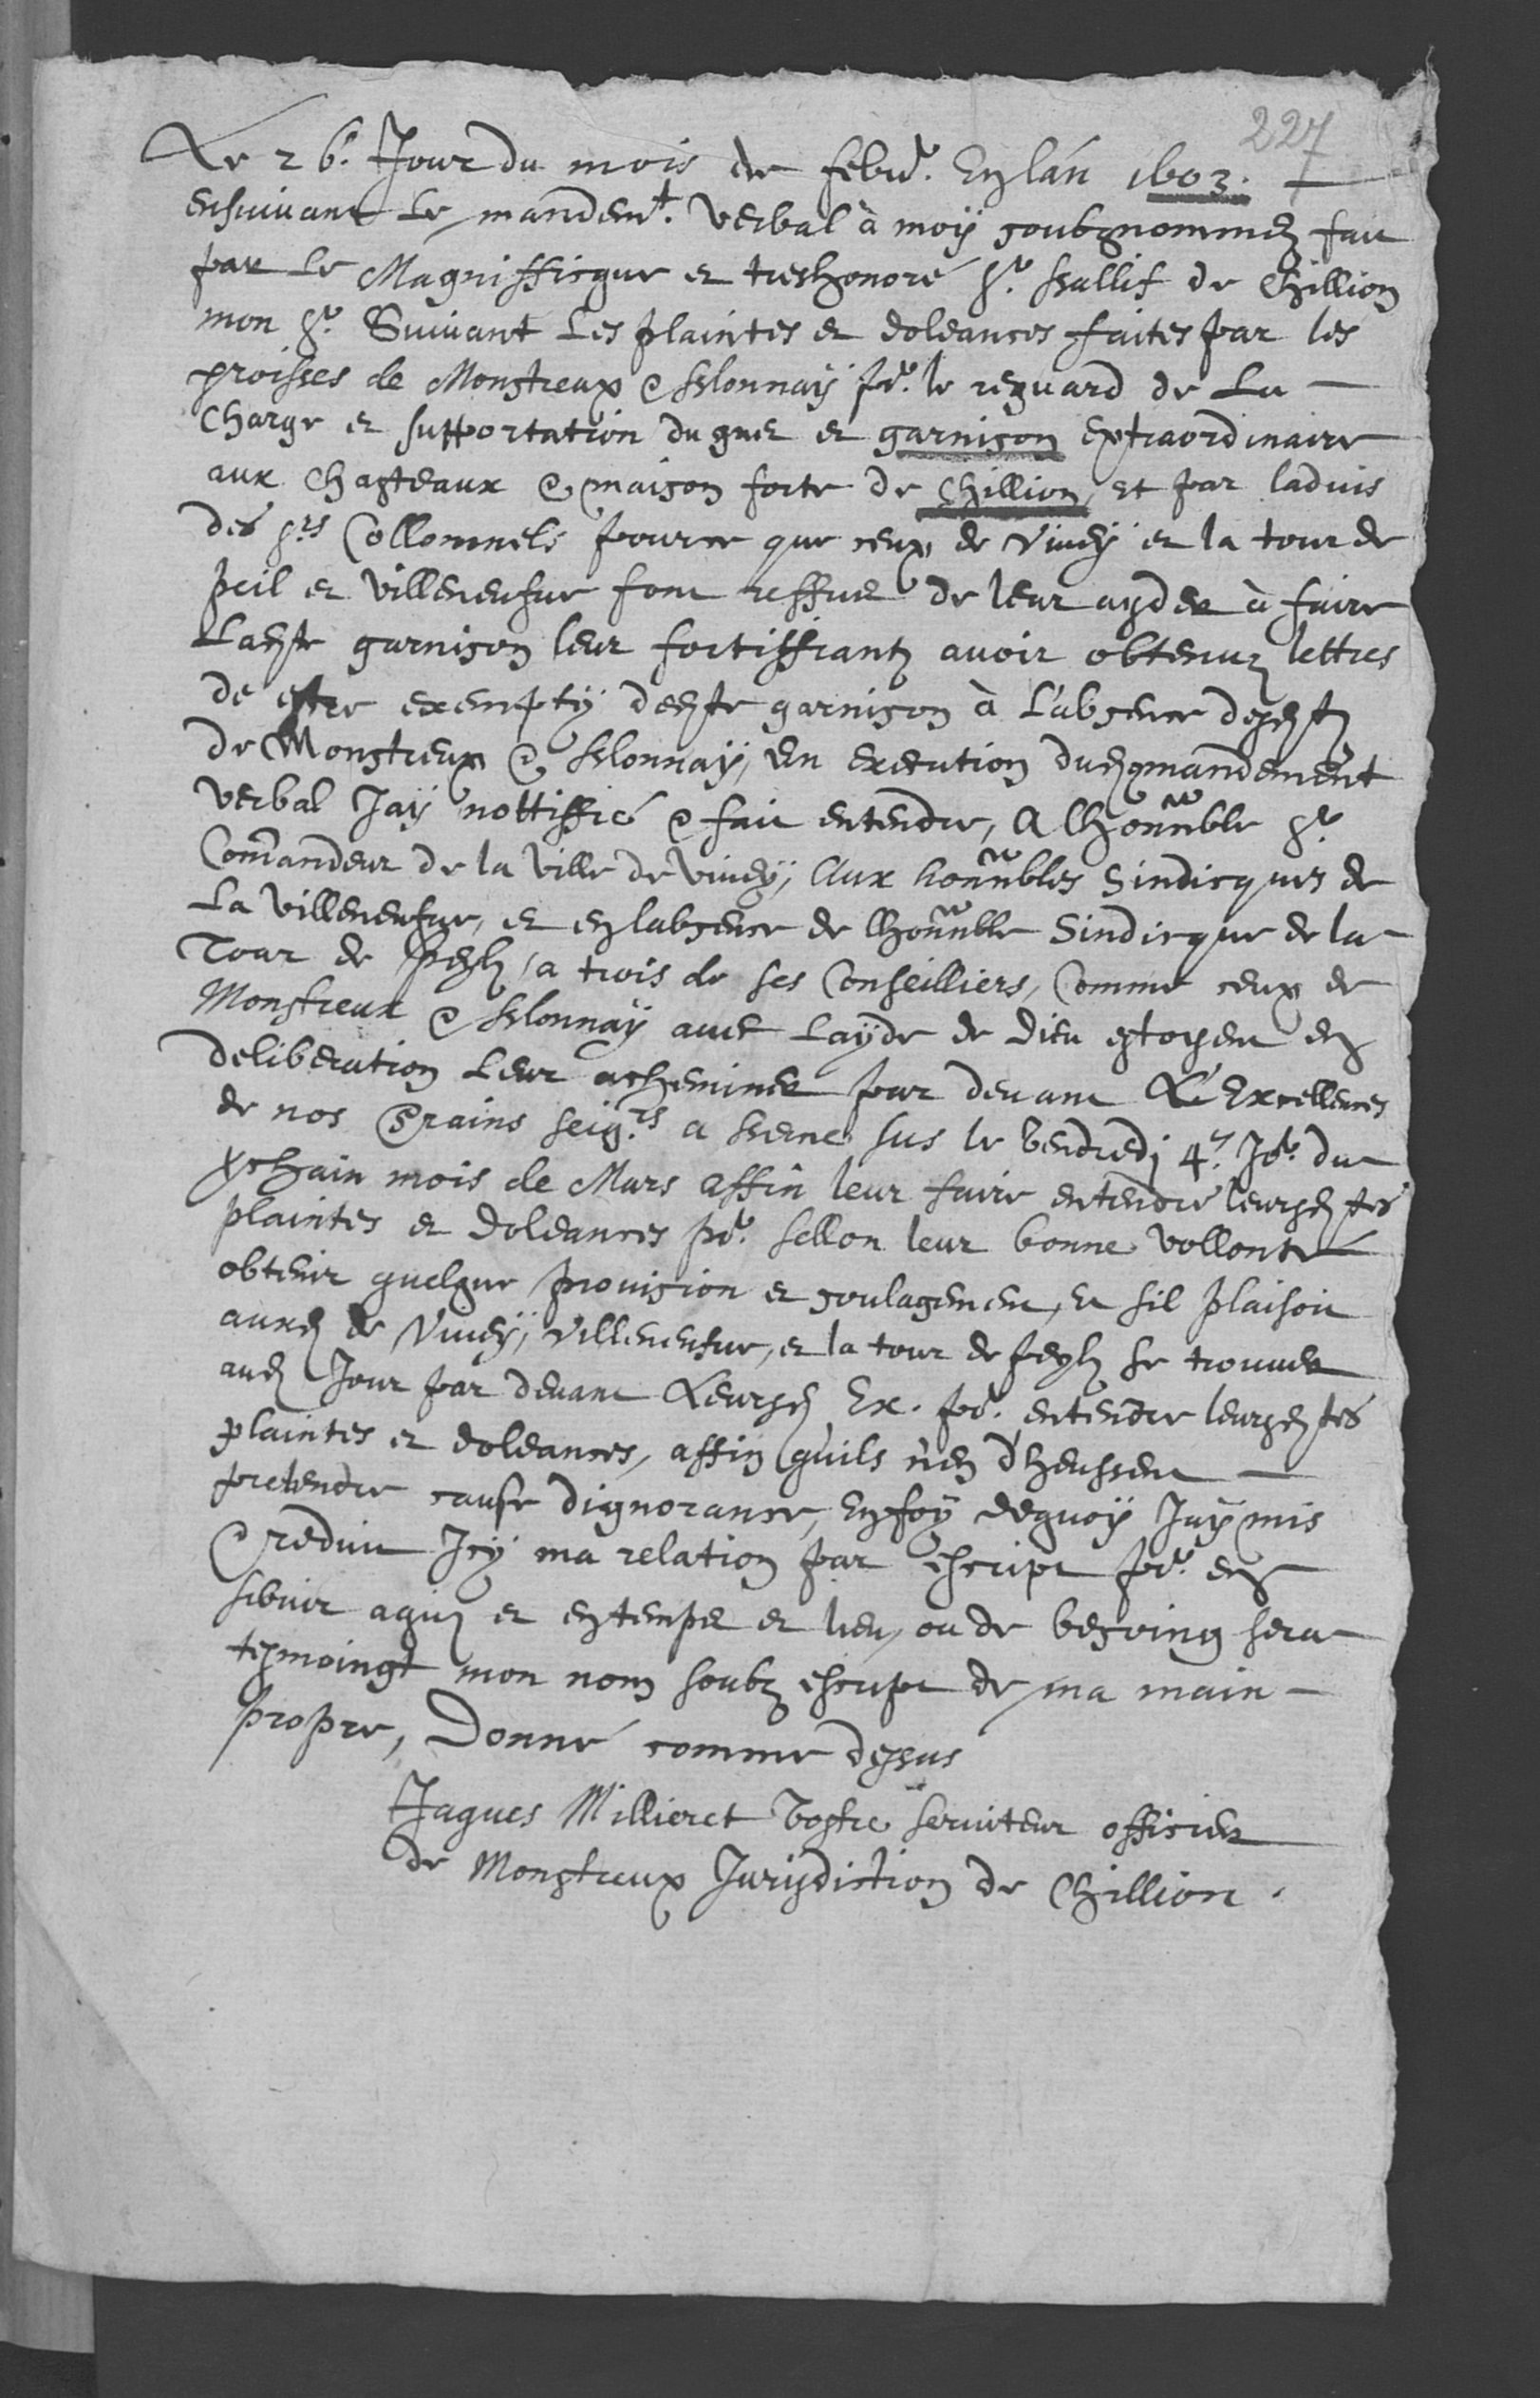 227
Le 26. Jour du mois de febvr. En lán 1603.
ensuivant Le mandemt. verbal à moÿ soubznommez fait
par Le Magnifficque et treshonoré sr. Ballif de Chillion
mon sr. Suivant Les plaintes et doleances faites par les
proisses de Monstreux & Blonnaÿ pr. le reguard de La
Charge et supportation du guet et garnison Extraordinaire
aux Chasteaux & maison forte de Chillion, et par ladvis
des srs Collomnels pource que ceux de Vivey et la tour de
peil et Villeneufve font reffus de leur ayder à faire
Ladte garnison leur fortiffiantz avoir obtenuz lettres
de estre exempty dedte garnison à L'absence desdtz
de Monstreux & Blonnaÿ, En Execution dudmandement
verbal Jaÿ nottiffié & fait entendre, A lhonnble sr.
Commandeur de la Ville de Vivey, Aux honnbles Sindicques de
La Villeneufve, et en labsence de lhonnble Sindicque de la
Tour de peyl, a trois de ses Conseilliers, Comme ceux de
Monstreux & Blonnaÿ avec Layde de Dieu estoyent en
deliberation Leur acheminer par devant L'Excellences
de nos Srains seigrs a Berne sus le Vendredi 4e Jor. du
prochain mois de Mars affin leur faire entendre leursdtes
plaintes et doleances pr. sellon leur bonne vollonté
obtenir quelque provision et soulagement, et sil plaisoit
auxd de Vivey, Villeneufve, et la tour de peyl se trouver
aud Jour par devant Leursd Ex. pr. entendre leursdtes
plaintes et doleances, affin quils n'en d'heussent
pretendre cause dignorance, En foÿ dequoÿ Jaÿ mis
& reduit Icy ma relation par escript pr. en
servir et en temps et lieu, ou de besoing sera
tesmoingt mon nom soubz escript de ma main
propre, Donné comme dessus
Jaques Millieret Vostre serviteur officier
de Monstreux Jurisdiction de Chillion.